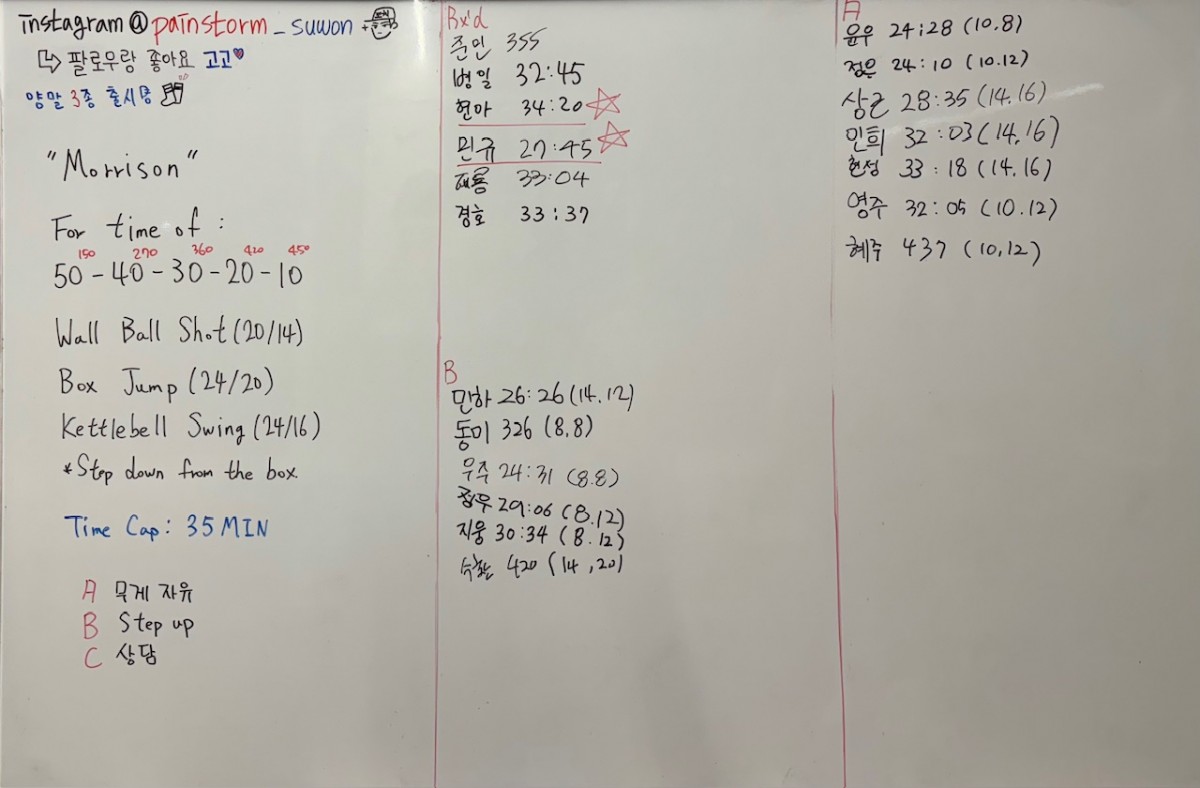 instagram@painstorm_suwon
팔로우랑 좋아요 고고
양말 3종 출시중
"Morrison"
For time of :
150 270 360 420 450
50-40-30-20-10
Wall Ball Shot (20/14)
Box Jump (24/20)
Kettlebell Swing (24/16)
*Step down from the box
Time Cap: 35 MIN
A 무게 자유
B Step up
C 상담
Rx'd
준인 355
병일 32:45
현아 34:20
민규 27:45
재용 33:04
경호 33:37
B
민하 26:26 (14.12)
동미 326 (8.8)
우주 24:31 (8.8)
29:06 (8.12)
지웅 30:34 (8.12)
420 (14,20)
A
윤우 24:28 (10.8)
정은 24:10 (10.12)
상근 28:35 (14.16)
민희 32:03 (14.16)
현정 33:18 (14.16)
영주 32:05 (10.12)
혜주 437 (10,12)